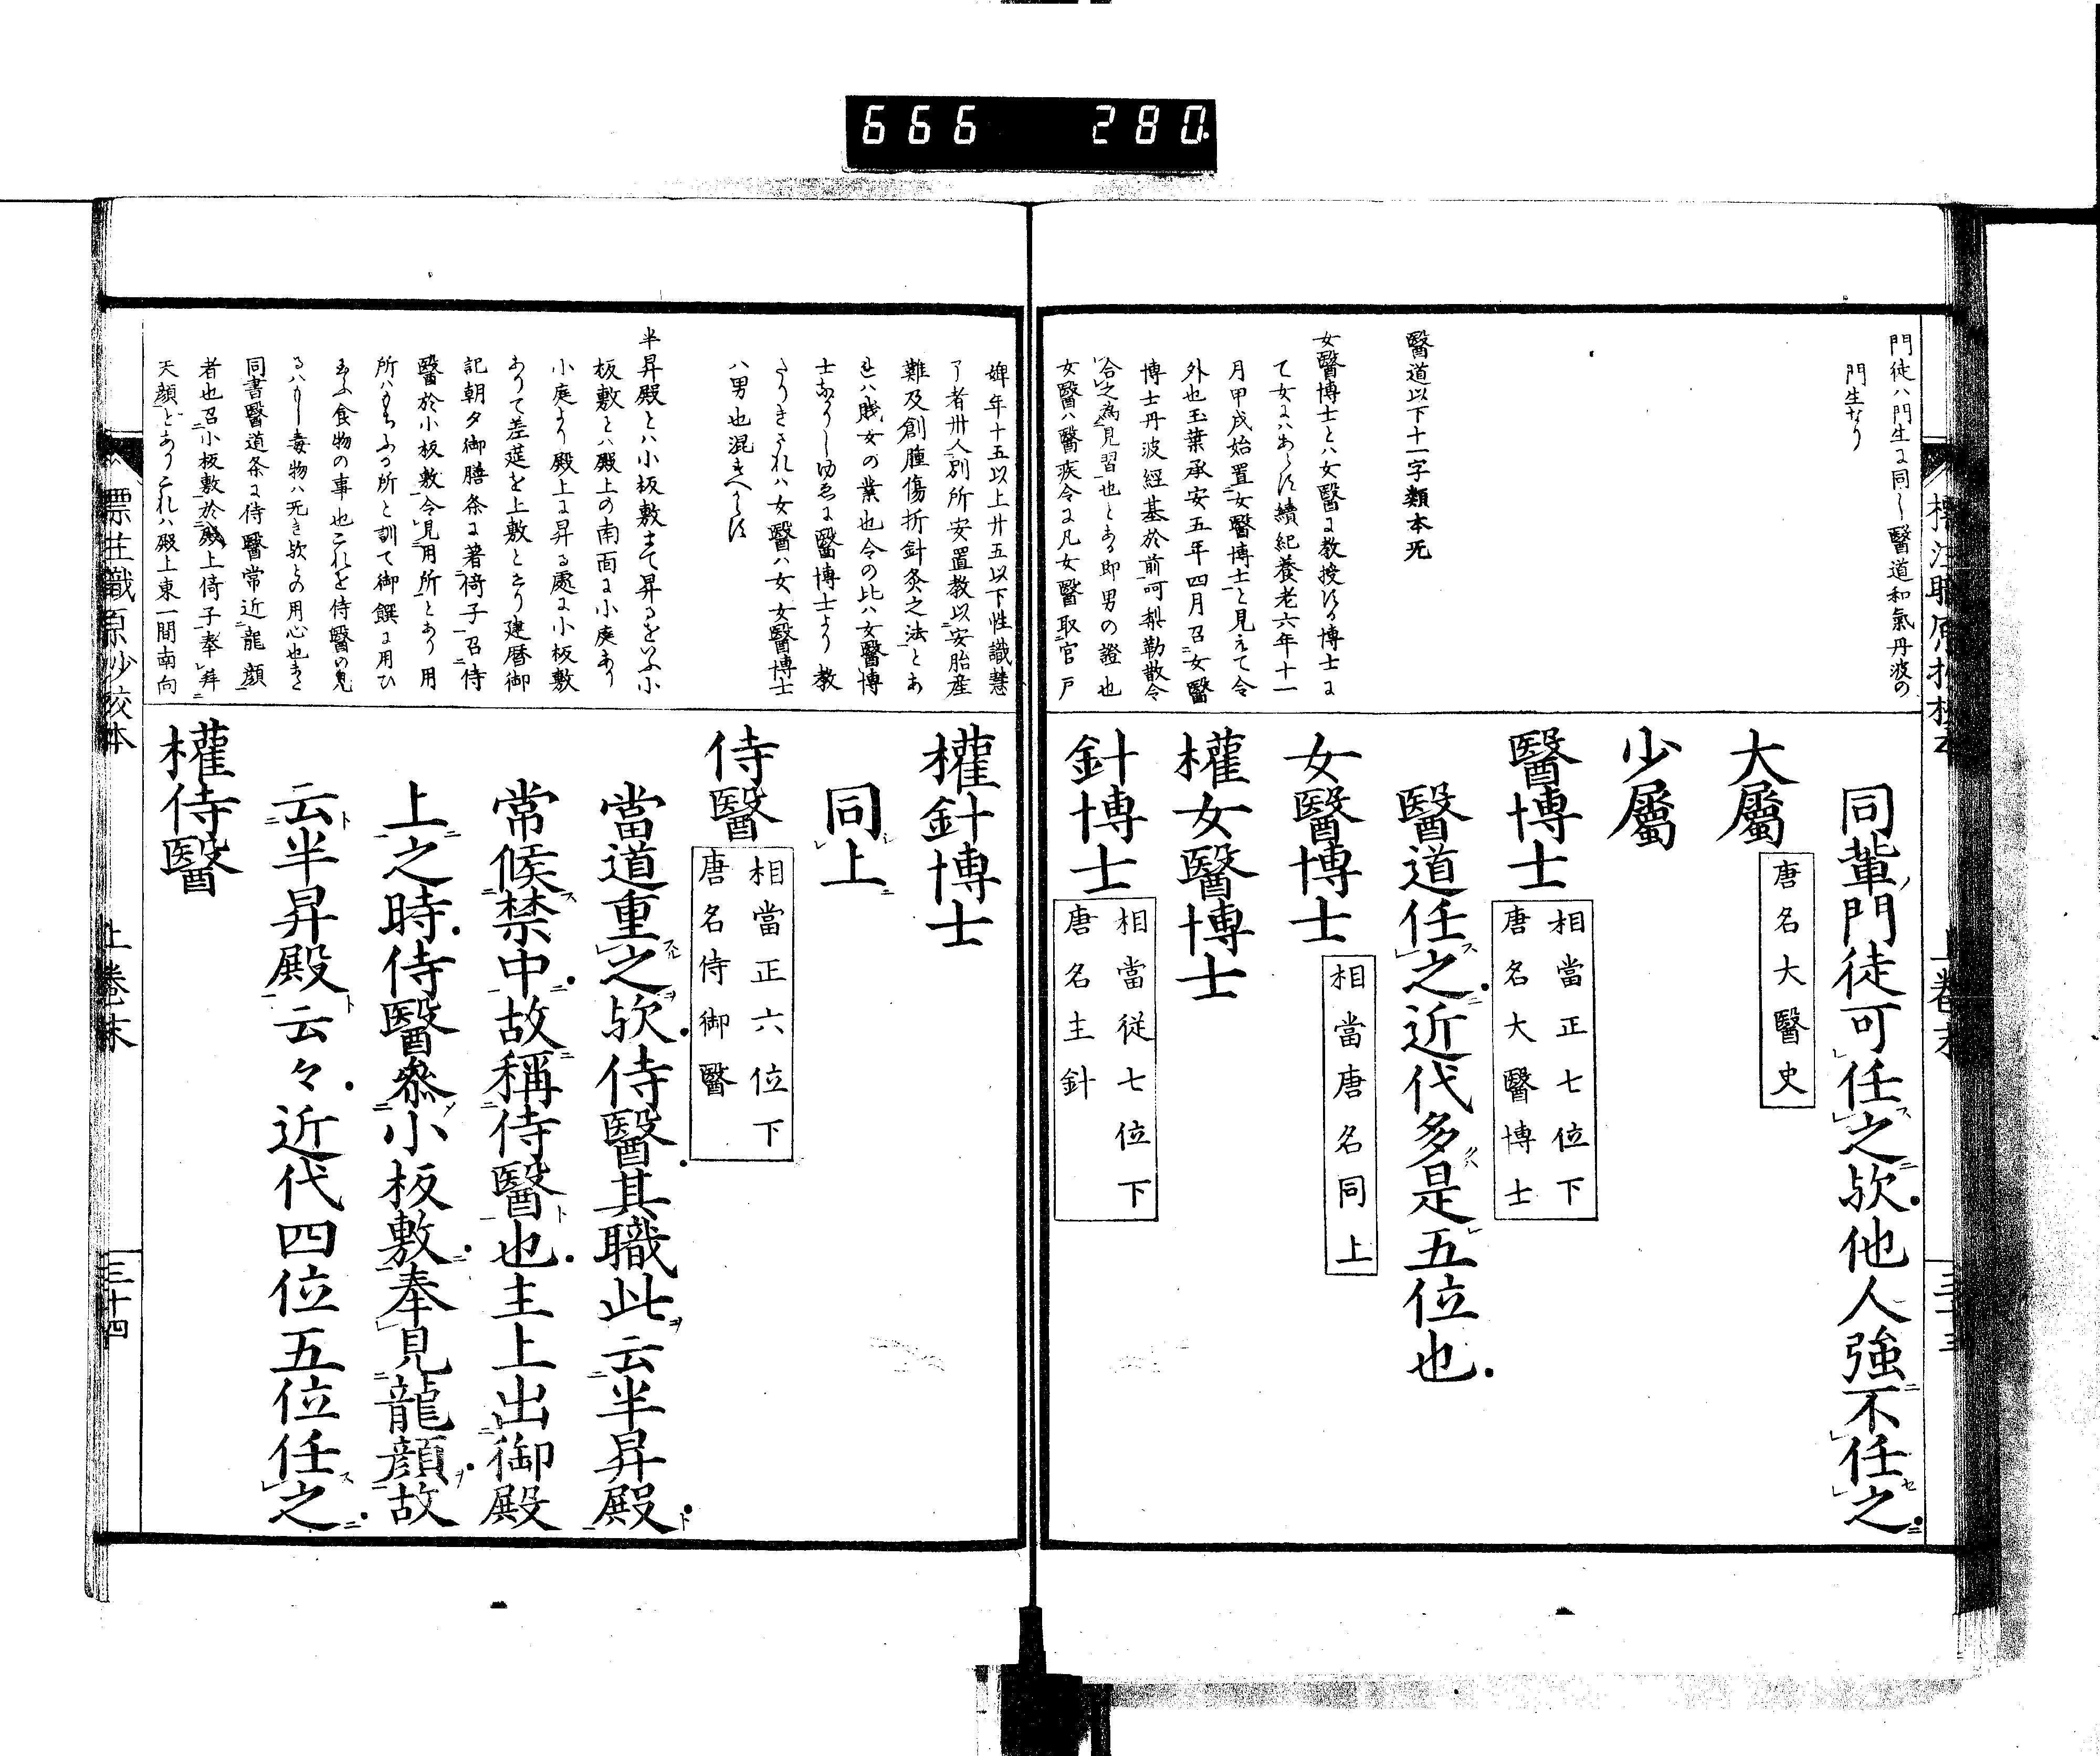 666 280.
門徒ハ門生ニ同し醫道和氣丹波の
門生なり
醫道以下十一字類本旡
女醫博士とハ女醫に教授する博士に
て女にハあらす續紀養老六年十一
月甲戌始置女醫博士と見えて令
外也玉葉承安五年四月召女醫
博士丹波經基於前呵梨勒散令
合之為見習也とある即男の證也
女醫ハ醫疾令に凡女醫取官戸
同輩門徒可任之欤他人強不任之
大屬
唐名大醫史
少屬
醫博士
相當正七位下
唐名大醫博士
醫道任之近代多是五位也
女醫博士
相當唐名同上
權女醫博士
針博士
相當従七位下
唐名主針
婢年十五以上廿五以下性識慧
了者卅人別所安置教以安胎産
難及創腫傷折針灸之法とあ
れハ賤女の業也令の比ハ女醫博
士なかりしゆゑに醫博士より教
たりきされハ女醫ハ女女醫博士
ハ男也混すへからす
半昇殿とハ小板敷まて昇るをいふ小
板敷とハ殿上の南面に小庭あり
小庭より殿上に昇る處に小板敷
ありて差莚を上敷とせり建暦御
記朝夕御膳条に著倚子召侍
醫於小板敷令見用所とあり用
所ハもちふる所と訓て御饌に用ひ
たまふ食物の事也これを侍醫の見
るハもし毒物ハ旡き欤との用心也また
同書醫道条に侍醫常近龍顔
者也召小板敷於殿上倚子奉拜
天顔とありこれハ殿上東一間南向
權針博士
同上
侍醫
相當正六位下
唐名侍御醫
當道重之欤侍醫其職此云半昇殿
常候禁中故稱侍醫也主上出御殿
上之時侍醫参小板敷奉見龍顔故
云半昇殿云々近代四位五位任之
權侍醫
標注職原抄校本
上巻末
三十四